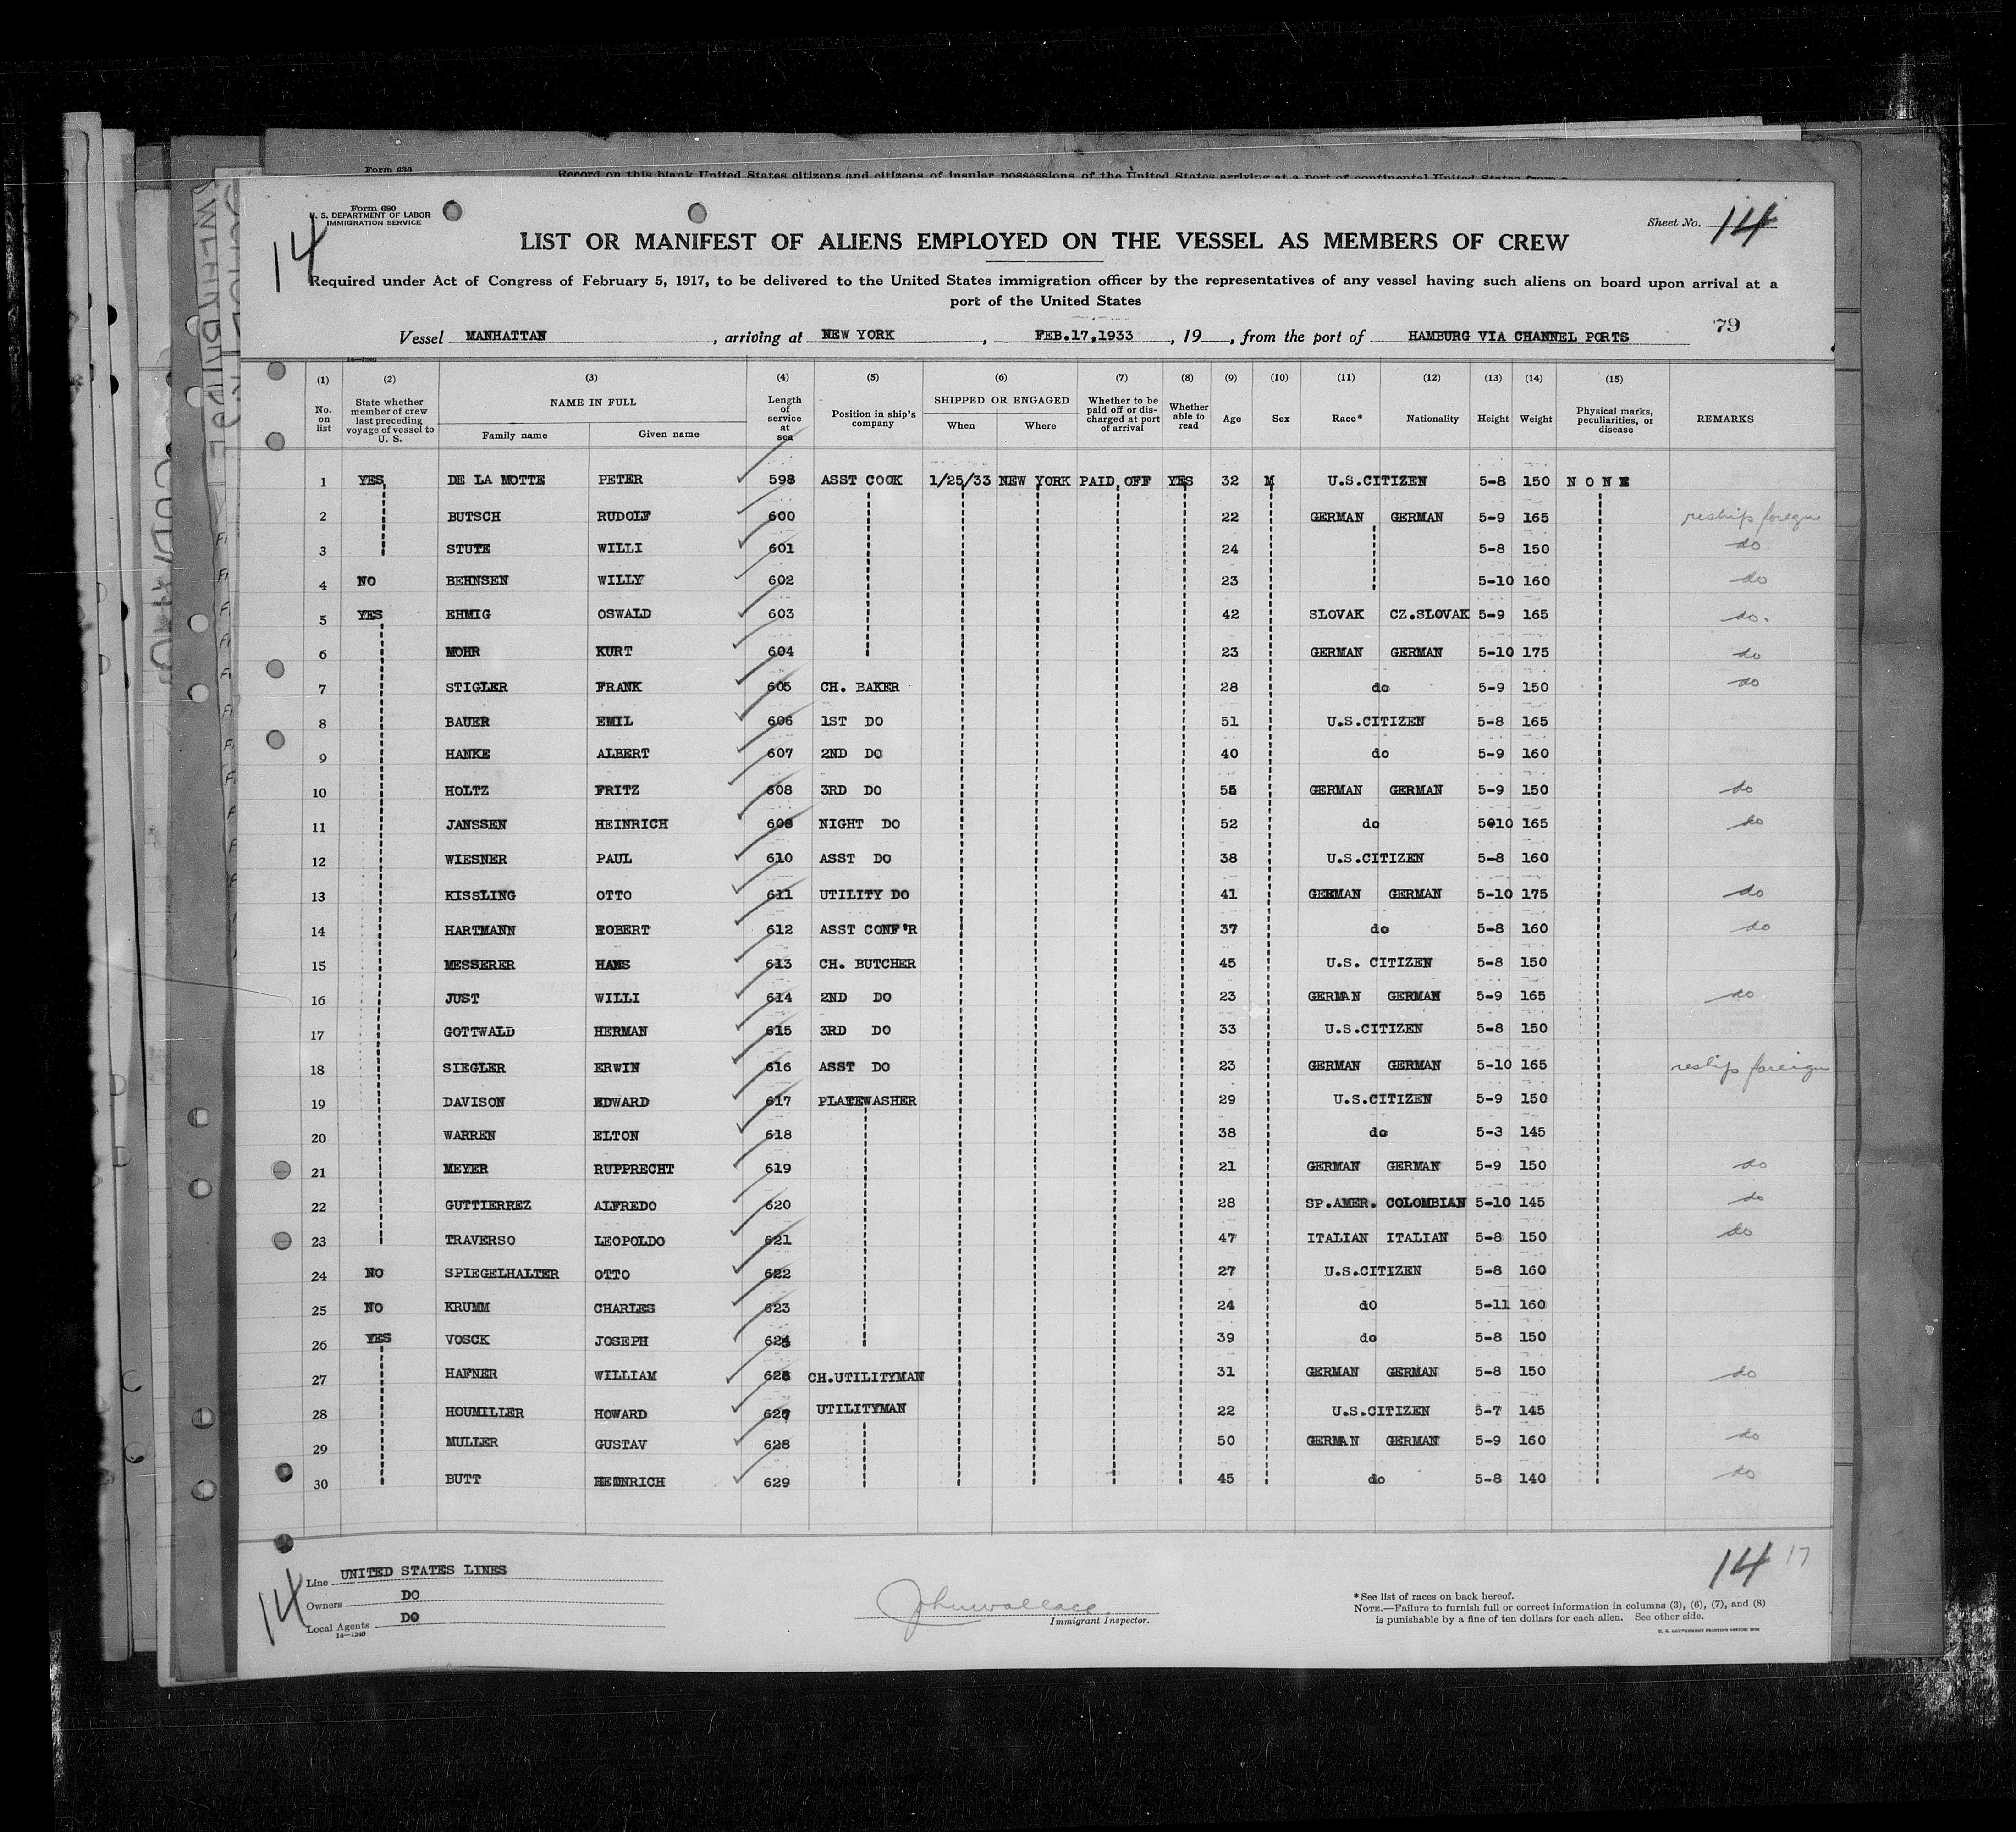 Form 630
Record on this blank United States citizens and citizens of insular possessions of the United States arriving at a port of continental United States from a
Form 680
U. S. DEPARTMENT OF LABOR
IMMIGRATION SERVICE
14
Sheet No. 14
LIST OR MANIFEST OF ALIENS EMPLOYED ON THE VESSEL AS MEMBERS OF CREW
Required under Act of Congress of February 5, 1917, to be delivered to the United States immigration officer by the representatives of any vessel having such aliens on board upon arrival at a
port of the United States
Vessel MANHATTAN, arriving at NEW YORK, FEB.17,1933, 19, from the port of HAMBURG VIA CHANNEL PORTS 79
14—1240
(1) (2) (3) (4) (5) (6) (7) (8) (9) (10) (11) (12) (13) (14) (15)
No. on list | State whether member of crew last preceding voyage of vessel to U. S. | NAME IN FULL Family name Given name | Length of service at sea | Position in ship's company | SHIPPED OR ENGAGED When Where | Whether to be paid off or discharged at port of arrival | Whether able to read | Age | Sex | Race* | Nationality | Height | Weight | Physical marks, peculiarities, or disease | REMARKS
1 YES DE LA MOTTE PETER 598 ASST COOK 1/25/33 NEW YORK PAID OFF YES 32 M U.S.CITIZEN 5-8 150 NONE
2 BUTSCH RUDOLF 600 22 GERMAN GERMAN 5-9 165 reship foreign
3 STUTE WILLI 601 24 5-8 150 do
4 NO BEHNSEN WILLY 602 23 5-10 160 do
5 YES EHMIG OSWALD 603 42 SLOVAK CZ.SLOVAK 5-9 165 do.
6 MOHR KURT 604 23 GERMAN GERMAN 5-10 175 do
7 STIGLER FRANK 605 CH. BAKER 28 do 5-9 150 do
8 BAUER EMIL 606 1ST DO 51 U.S.CITIZEN 5-8 165
9 HANKE ALBERT 607 2ND DO 40 do 5-9 160
10 HOLTZ FRITZ 608 3RD DO 55 GERMAN GERMAN 5-9 150 do
11 JANSSEN HEINRICH 609 NIGHT DO 52 do 5-10 165 do
12 WIESNER PAUL 610 ASST DO 38 U.S.CITIZEN 5-8 160
13 KISSLING OTTO 611 UTILITY DO 41 GERMAN GERMAN 5-10 175 do
14 HARTMANN ROBERT 612 ASST CONF'R 37 do 5-8 160 do
15 MESSERER HANS 613 CH. BUTCHER 45 U.S. CITIZEN 5-8 150
16 JUST WILLI 614 2ND DO 23 GERMAN GERMAN 5-9 165 do
17 GOTTWALD HERMAN 615 3RD DO 33 U.S.CITIZEN 5-8 150
18 SIEGLER ERWIN 616 ASST DO 23 GERMAN GERMAN 5-10 165 reship foreign
19 DAVISON EDWARD 617 PLATEWASHER 29 U.S.CITIZEN 5-9 150
20 WARREN ELTON 618 38 do 5-3 145
21 MEYER RUPPRECHT 619 21 GERMAN GERMAN 5-9 150 do
22 GUTTIERREZ ALFREDO 620 28 SP.AMER. COLOMBIAN 5-10 145 do
23 TRAVERSO LEOPOLDO 621 47 ITALIAN ITALIAN 5-8 150 do
24 NO SPIEGELHALTER OTTO 622 27 U.S.CITIZEN 5-8 160
25 NO KRUMM CHARLES 623 24 do 5-11 160
26 YES VOSCK JOSEPH 39 do 5-8 150
27 HAFNER WILLIAM CH.UTILITYMAN 31 GERMAN GERMAN 5-8 150 do
28 HOUMILLER HOWARD 627 UTILITYMAN 22 U.S.CITIZEN 5-7 145
29 MULLER GUSTAV 628 50 GERMAN GERMAN 5-9 160 do
30 BUTT HEINRICH 629 45 do 5-8 140 do
14 17
14
Line UNITED STATES LINES
Owners DO
Local Agents DO
14—1240
John Wallace
Immigrant Inspector.
*See list of races on back hereof.
NOTE.—Failure to furnish full or correct information in columns (3), (6), (7), and (8)
is punishable by a fine of ten dollars for each alien. See other side.
U. S. GOVERNMENT PRINTING OFFICE